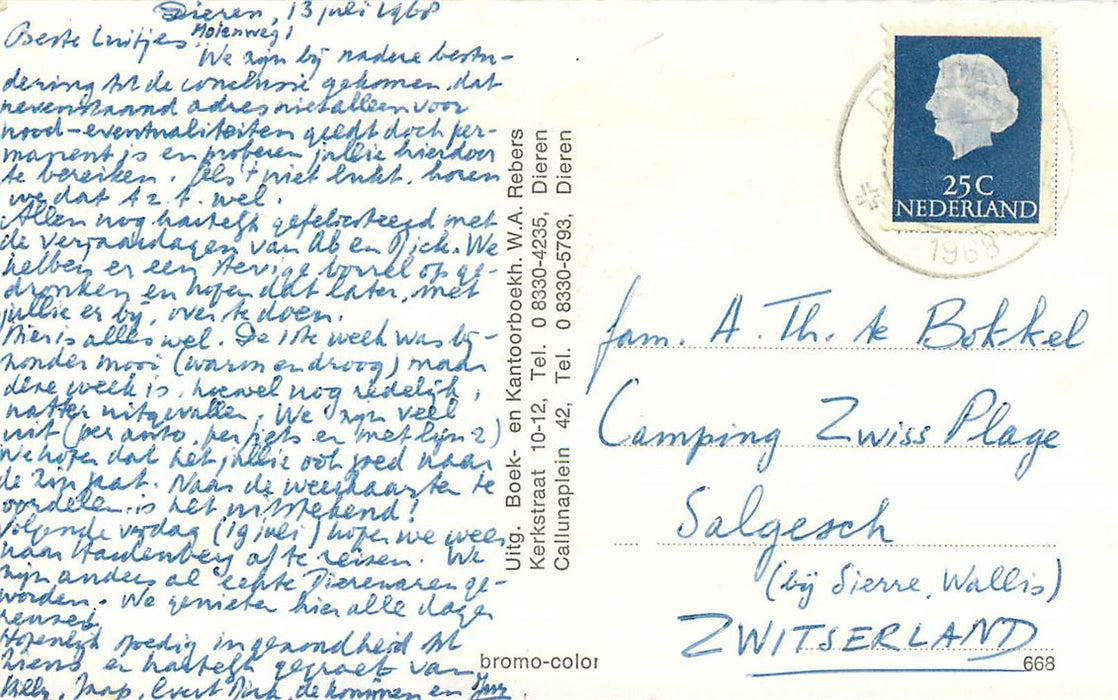 Dieren, 13 juli 1968
Molenweg 1
Beste Luitjes,
We zijn bij nadere bestu-
dering tot de conclusie gekomen, dat
nevenstaand adres niet alleen voor
nood-eventualiteiten geldt doch per-
manent is en proberen jullie hierdoor
te bereiken. Als 't niet lukt, horen
we dat t.z.t. wel.
Allen nog hartelijk gefeliciteerd met
de verjaardagen van Ab en Dick. We
hebben er een stevige borrel op ge-
dronken en hopen dat later, met
jullie er bij, over te doen.
Hier is alles wel. De 1ste week was bij-
zonder mooi (warm en droog) maar
deze week is, hoewel nog redelijk,
natter uitgevallen. We zijn veel
uit (per auto, per fiets en met lijn 2)
We hopen dat het jullie ook goed naar
de zin gaat. Naar de weerkaarten te
oordelen is het uitstekend!
Volgende vrijdag (19 juli) hopen we weer
naar Hardenberg af te reizen. We
zijn anders al echte Dierenaren ge-
worden. We genieten hier alle dagen
Hopelijk spoedig in gezondheid tot
ziens en hartelijk gegroet van
Jaap, Evert Dirk, de konijnen en
Uitg. Boek- en Kantoorboekh. W.A. Rebers
Kerkstraat 10-12, Tel. 0 8330-4235, Dieren
Callunaplein 42, Tel. 0 8330-5793, Dieren
bromo-color
25C
NEDERLAND
1968
fam. A. Th. te Bokkel
Camping Zwiss Plage
Salgesch
(bij Sierre, Wallis)
ZWITSERLAND
668